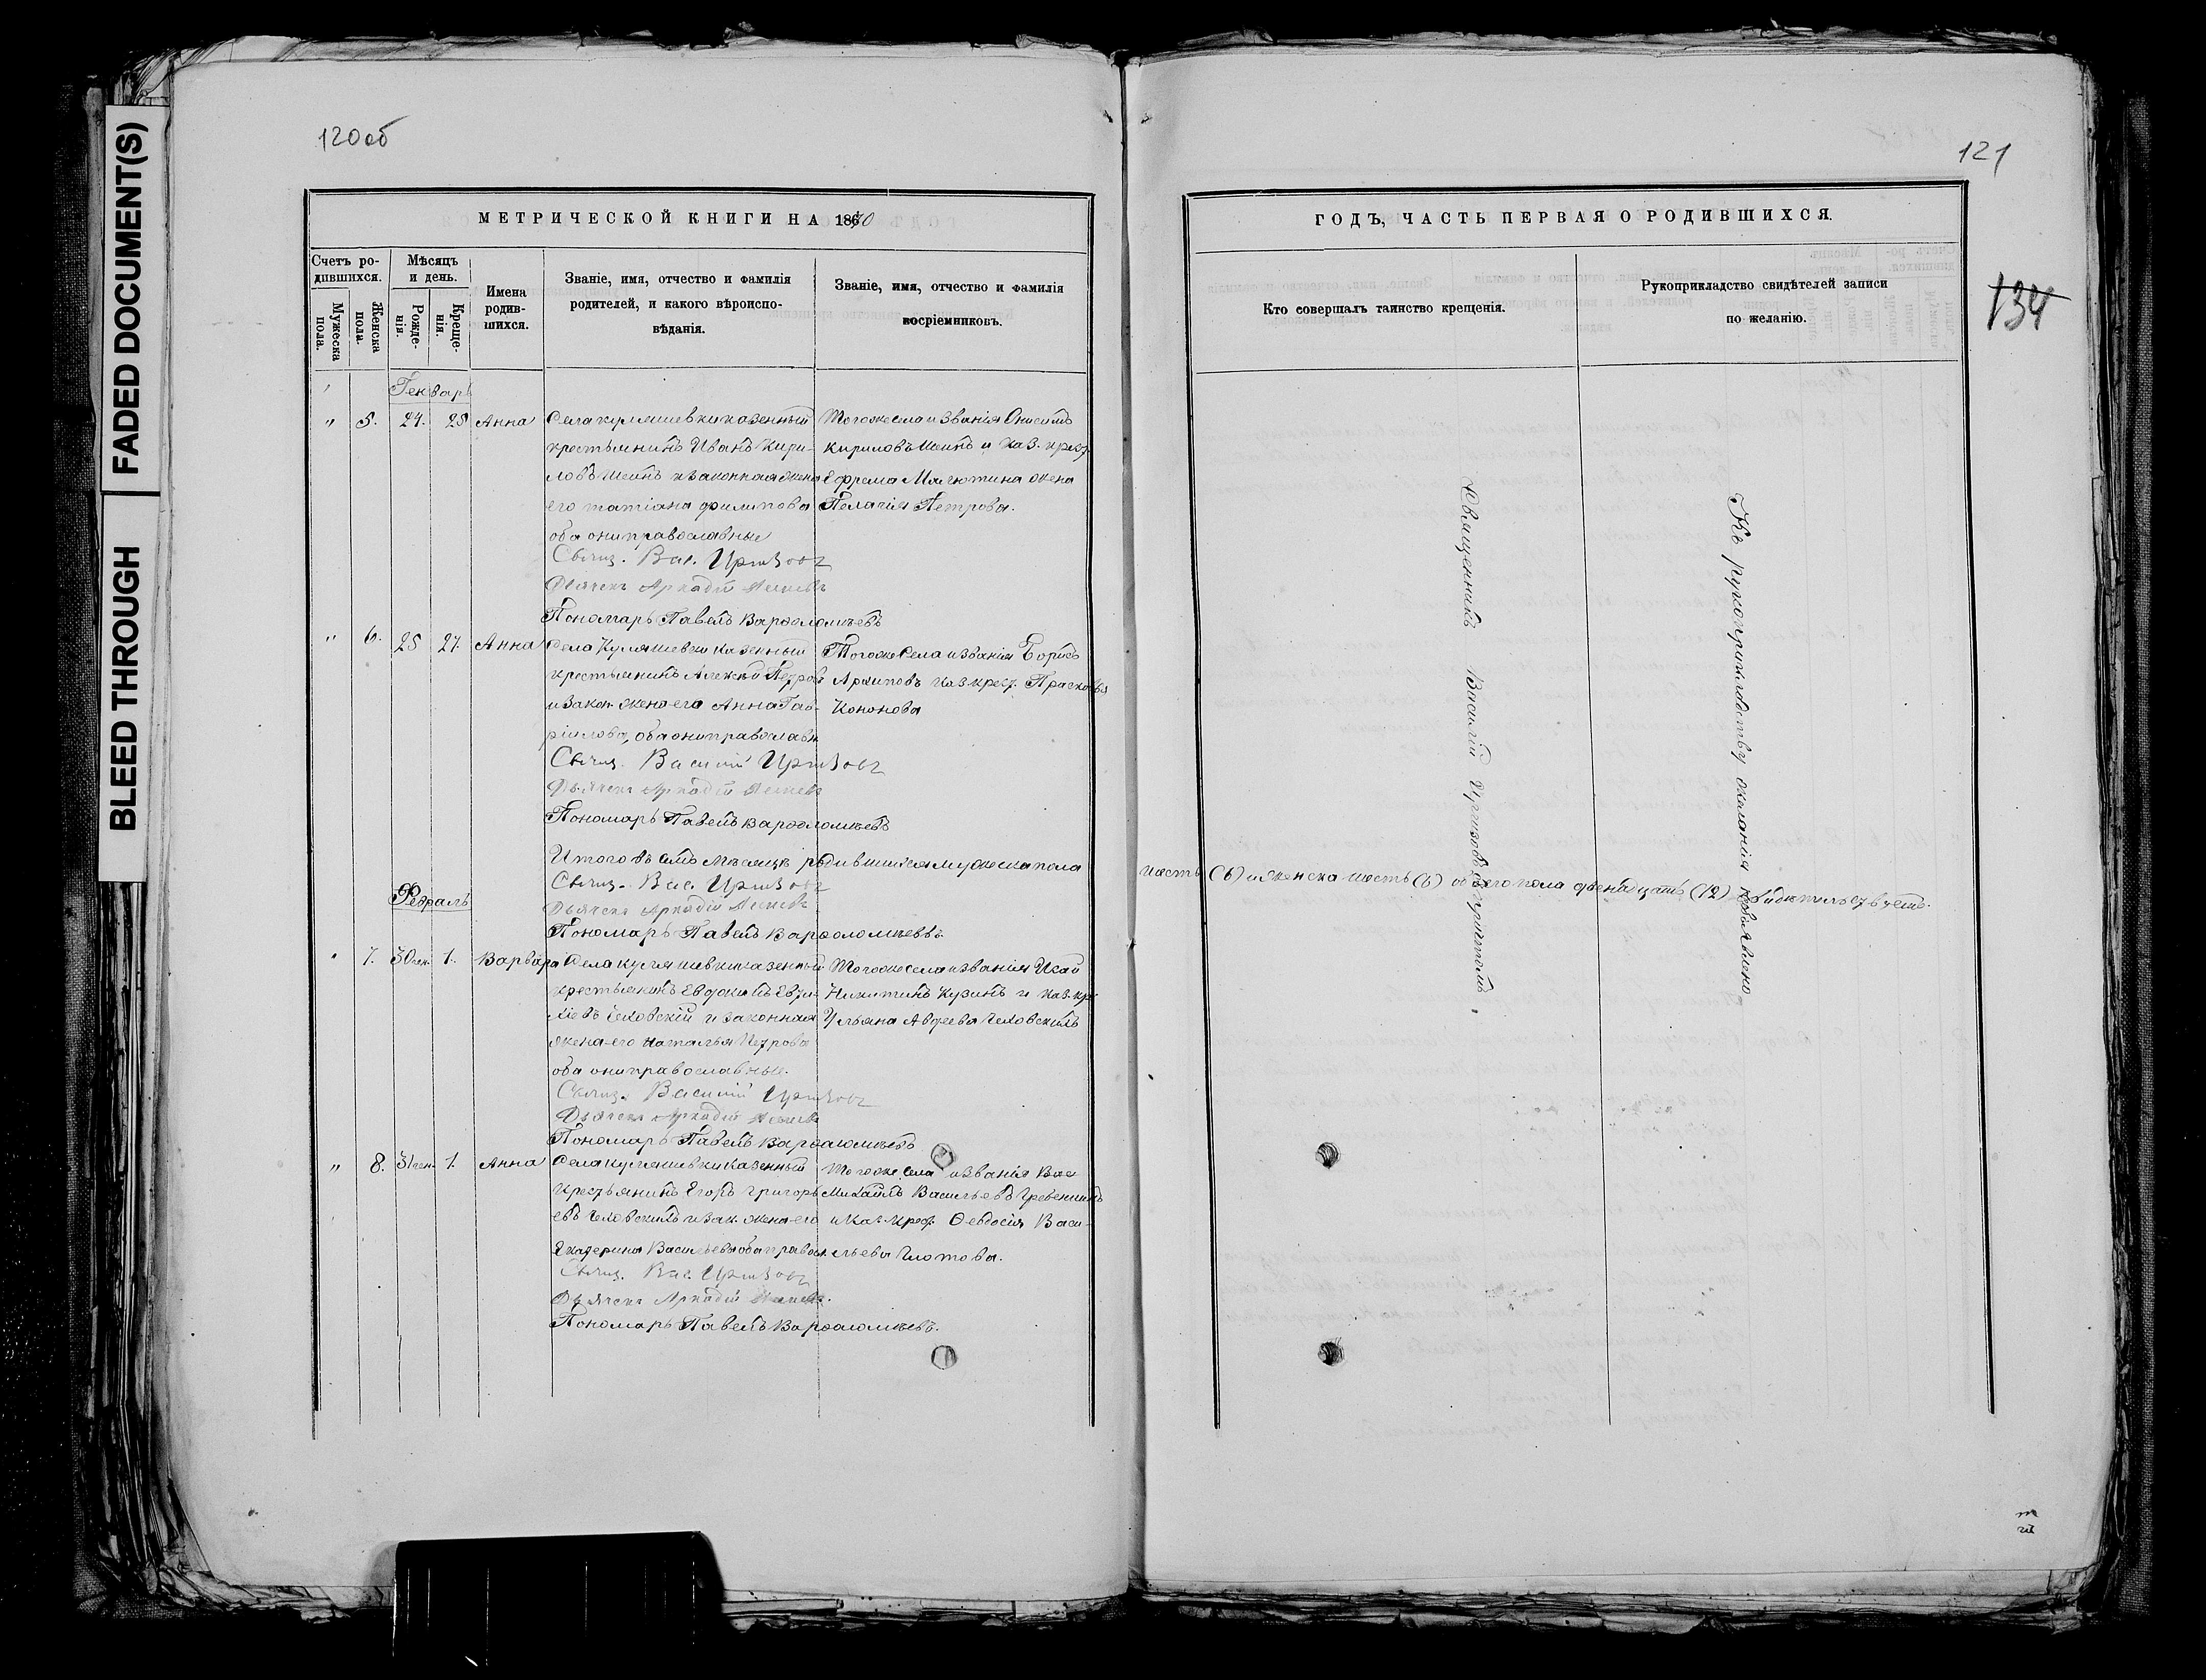 FADED DOCUMENT(S)
BLEED THROUGH
120об
МЕТРИЧЕСКОЙ КНИГИ НА 1870
Счетъ ро-
дившихся.
Мужеска пола.
Женска пола.
Мѣсяцъ
и день.
Рожде-
нія.
Креще-
нія.
Имена
родив-
шихся.
Званіе, имя, отчество и фамилія
родителей, и какого вѣроиспо-
вѣданія.
Званіе, имя, отчество и фамилія
восріемниковъ.
Генварь
" 5. 24. 25 Анна
Села Куляшевки казенный
крестьянинъ Иванъ Кири-
ловъ Шеинъ и законная жена
его татіана филипова
оба они православные
Свящ. Вас. Иргизовъ
Дьячекъ Аркадій
Пономарь Павелъ Варѳоломѣевъ
Тогоже села и званія Онисимъ
Кириловъ Шеинъ и каз. крест.
Ефрема Милютина жена
Пелагія Петрова.
" 6. 25 27. Анна
Села Куляшевки казенный
крестьянинъ Алексѣй Петров
и закон. жена его Анна Гав-
ріилова, оба они православн
Свящ. Василій Иргизовъ
Дьячекъ Аркадій
Пономарь Павелъ Варѳоломѣевъ
Тогоже Села и званія Борисъ
Архиповъ каз. крест. Прасковья
Кононова
Итого въ семъ мѣсяцѣ родившихся мужеска пола шесть (6) и женска шесть (6) обоего пола двенадцать (12) свидѣтельствуемъ.
Свящ. Вас. Иргизовъ
Дьячекъ Аркадій
Пономарь Павелъ Варѳоломѣевъ
Февраль
" 7. 30 ген. 1. Варвара
Села куляшевки казенный
крестьянинъ Евдокимъ Евти-
хіевъ Чеховскій и законная
жена его Наталья Петрова
оба они православные.
Свящ. Василій Иргизовъ
Дьячекъ Аркадій
Пономарь Павелъ Варѳоломѣевъ
Тогоже села и званія Исай
Никитинъ Кузинъ и каз. кре
Ульяна Авдеева Чеховскихъ
" 8. 31 ген. 1. Анна
Села куляшевки казенный
крестьянинъ Егоръ Григорь
евъ Чеховскихъ и зак. жена его
Екатерина Васильева оба правосл
Свящ. Вас. Иргизовъ
Дьячекъ Аркадій
Пономарь Павелъ Варѳоломѣевъ.
Тогоже Села и званія
Михаилъ Васильевъ Гребенщик
и Каз. крест. Ѳеодосія Васи-
льева Глотова.
121
134
ГОДЪ, ЧАСТЬ ПЕРВАЯ О РОДИВШИХСЯ.
Кто совершалъ таинство крещенія.
Рукоприкладство свидѣтелей записи
по желанію.
Священникъ Василій Иргизовъ съ причтомъ
Къ рукоприкладству желанія не заявлено